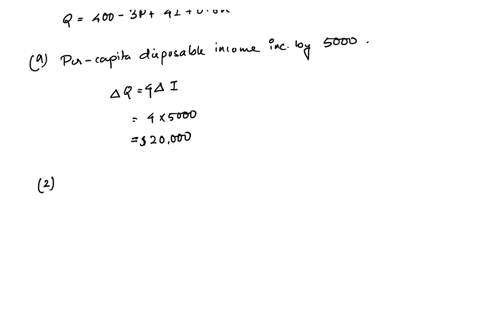 Q = 400 - 3P + 4I +
(a) Per-capita disposable income inc. by 5000.
ΔQ = 4ΔI
= 4 × 5000
= $20,000
(2)